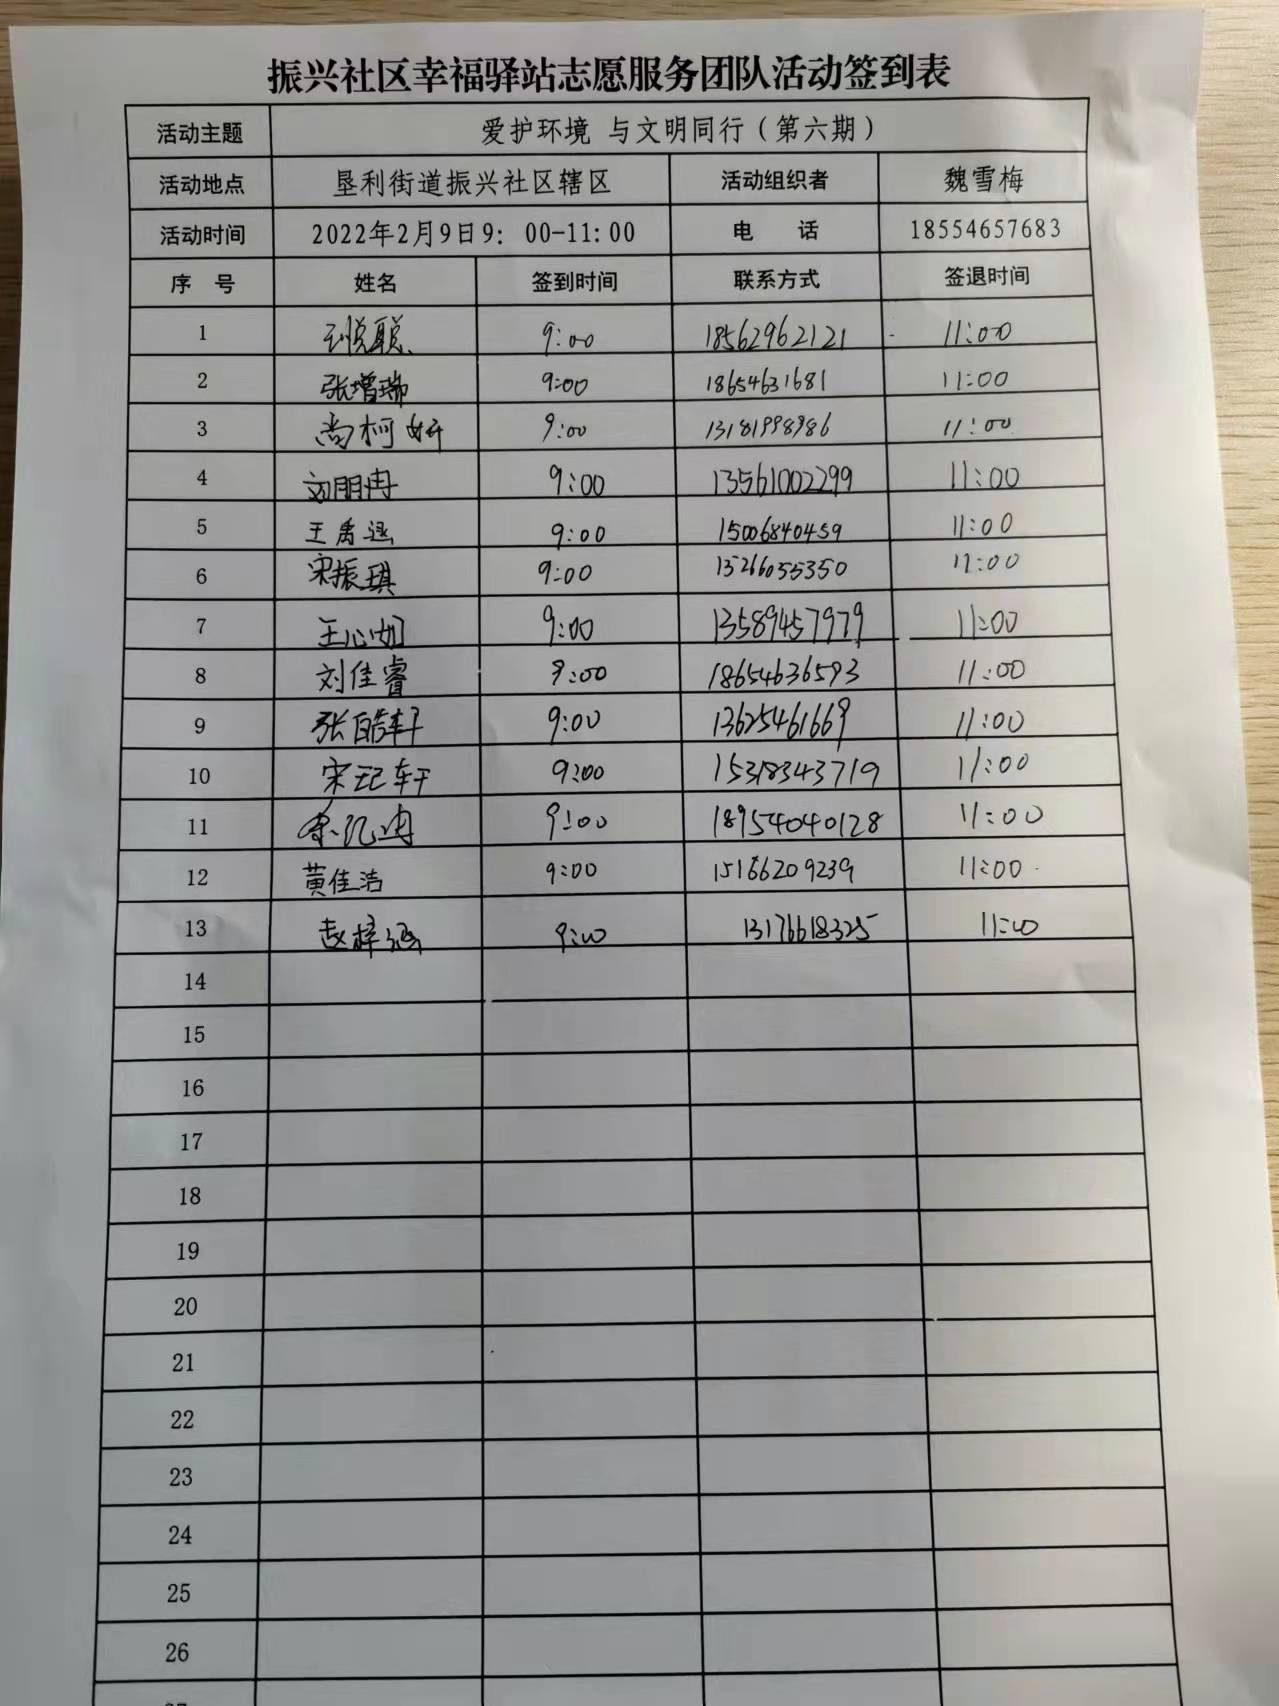 振兴社区幸福驿站志愿服务团队活动签到表
活动主题 爱护环境 与文明同行（第六期）
活动地点 垦利街道振兴社区辖区 活动组织者 魏雪梅
活动时间 2022年2月9日9：00-11:00 电 话 18554657683
序 号 姓名 签到时间 联系方式 签退时间
1 9:00 18562962121 11:00
2 张增瑞 9:00 18654631681 11:00
3 尚柯妍 9:00 13181998986 11:00
4 刘朋冉 9:00 13561002299 11:00
5 王禹涵 9:00 15006840459 11:00
6 宋振琪 9:00 15266055350 11:00
7 王心如 9:00 13589457979 11:00
8 刘佳睿 9:00 18654636593 11:00
9 张皓轩 9:00 13625461669 11:00
10 9:00 15318343719 11:00
11 9:00 18954040128 11:00
12 黄佳洁 9:00 15166209239 11:00
13 赵梓涵 9:00 13176618325 11:00
14
15
16
17
18
19
20
21
22
23
24
25
26